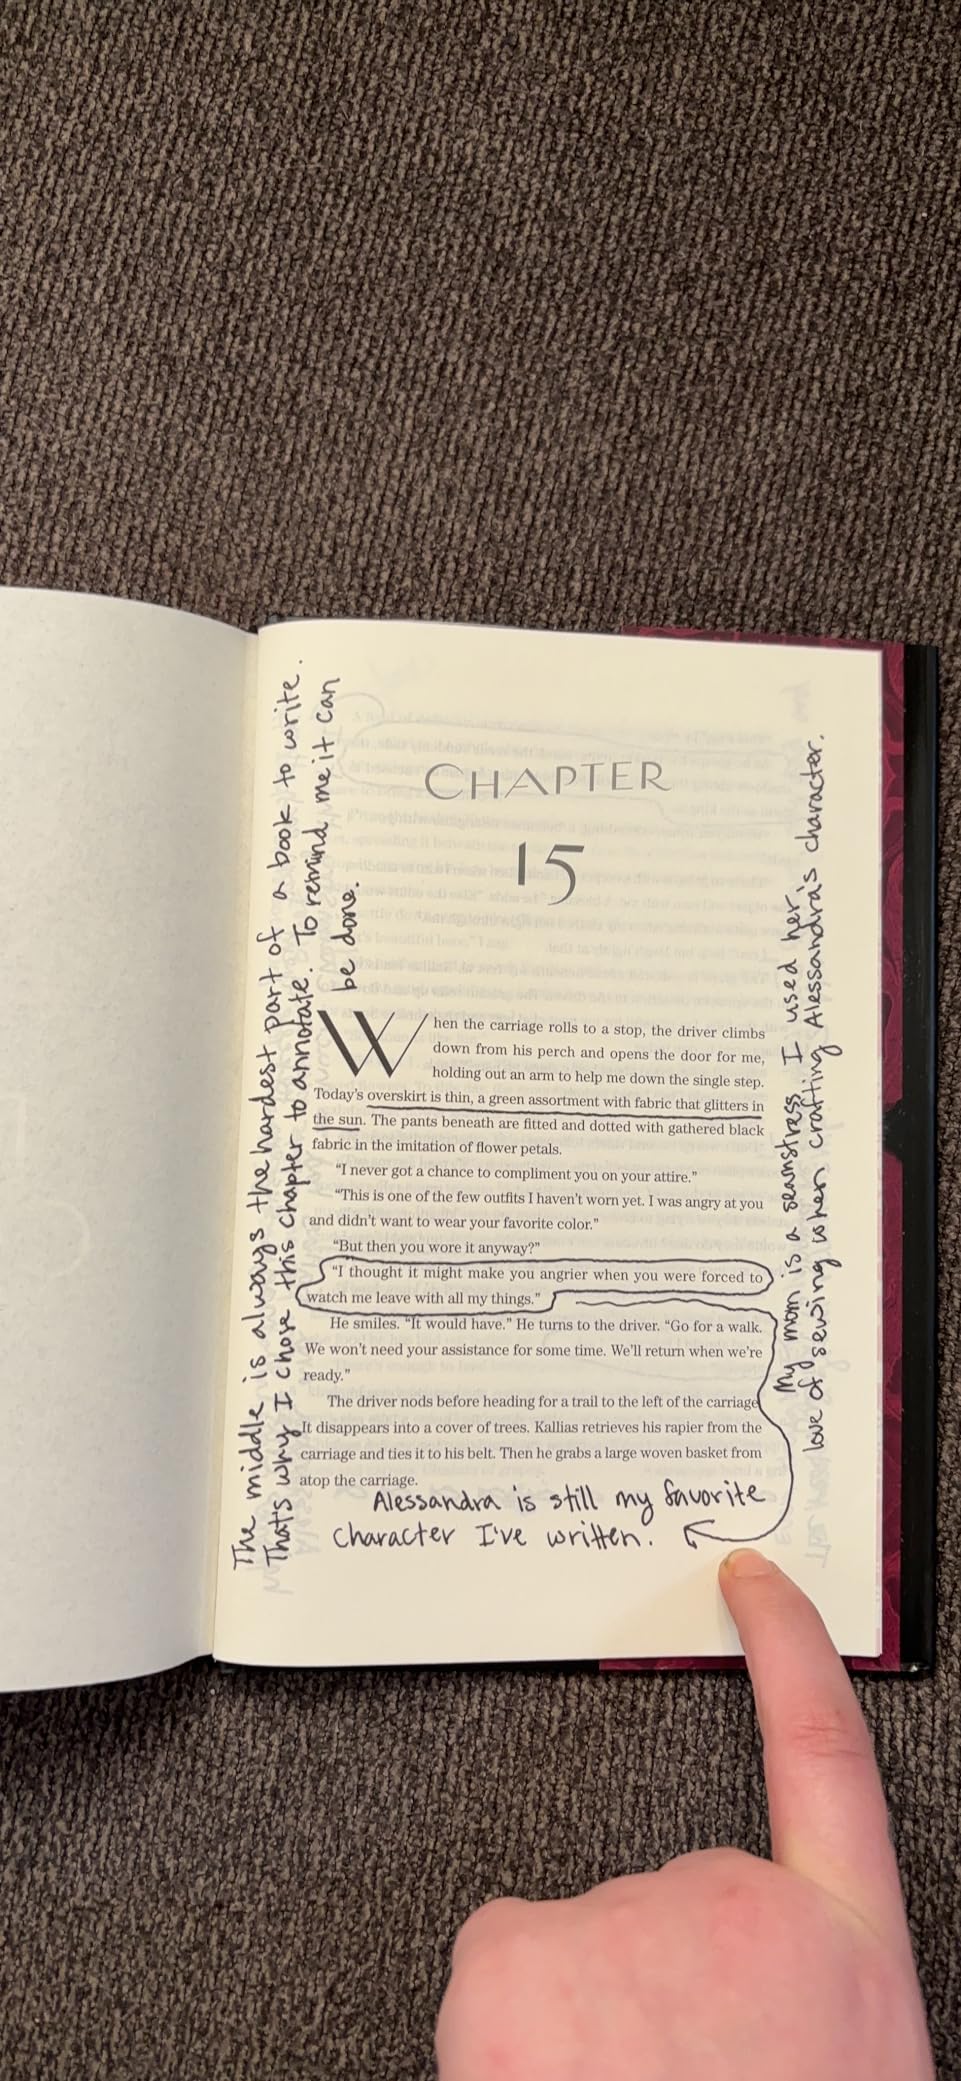 The middle is always the hardest part of a book to write.
That's why I chose this chapter to annotate. To remind me it can
be done.
CHAPTER
15
When the carriage rolls to a stop, the driver climbs
down from his perch and opens the door for me,
holding out an arm to help me down the single step.
Today's overskirt is thin, a green assortment with fabric that glitters in
the sun. The pants beneath are fitted and dotted with gathered black
fabric in the imitation of flower petals.
“I never got a chance to compliment you on your attire.”
“This is one of the few outfits I haven't worn yet. I was angry at you
and didn't want to wear your favorite color.”
“But then you wore it anyway?”
“I thought it might make you angrier when you were forced to
watch me leave with all my things.”
He smiles. “It would have.” He turns to the driver. “Go for a walk.
We won't need your assistance for some time. We'll return when we're
ready.”
The driver nods before heading for a trail to the left of the carriage.
It disappears into a cover of trees. Kallias retrieves his rapier from the
carriage and ties it to his belt. Then he grabs a large woven basket from
atop the carriage.
Alessandra is still my favorite
character I've written.
My mom is a seamstress. I used her
love of sewing when crafting Alessandra's character.